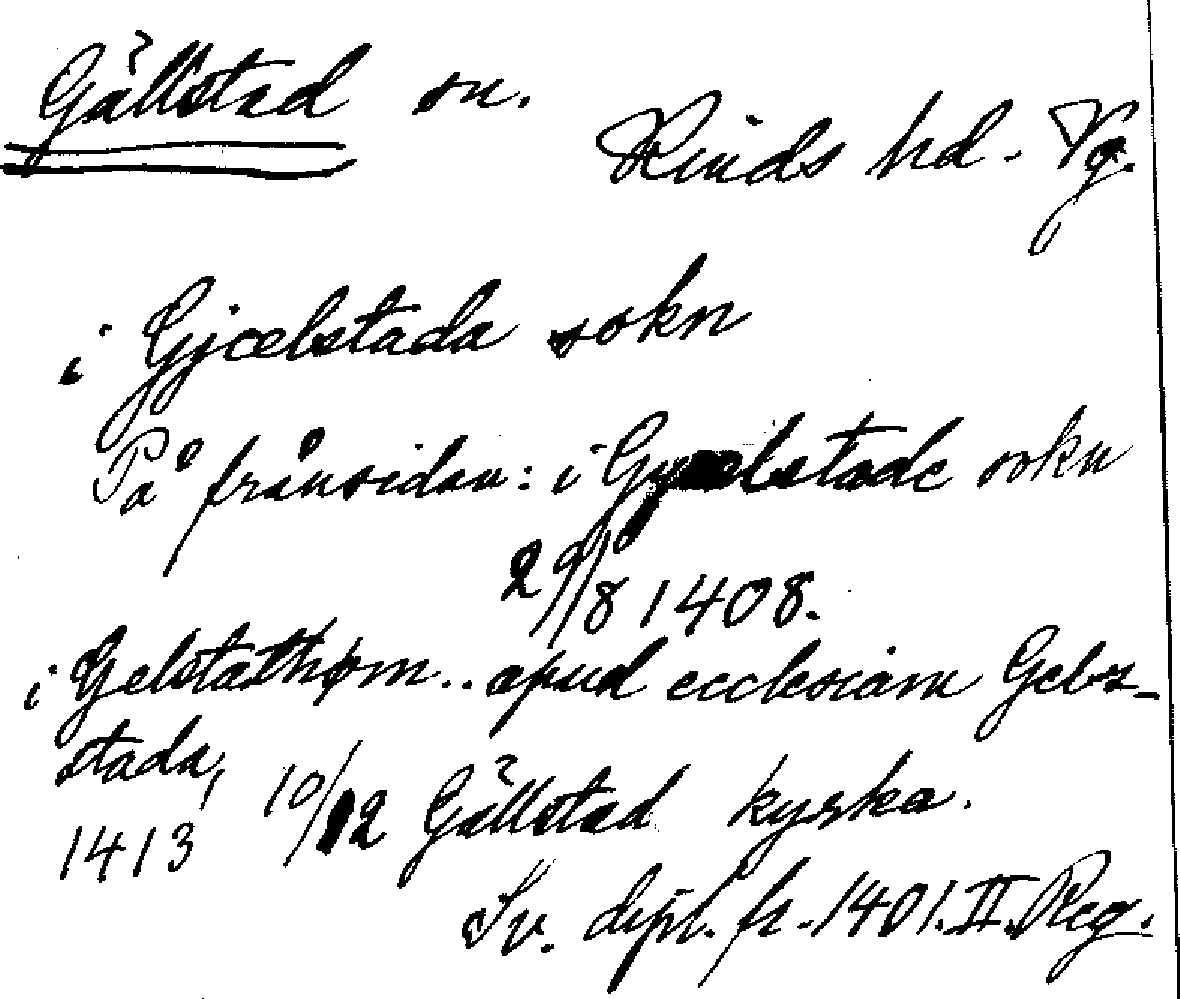 Gällstad sn.
Kinds hd. Vg.
i Gjcelstada sokn
På frånsidan: i Gycelstade sokn
29/8 1408.
i Gelstathom.. apud ecclesiam Gels-
stada,
1413 10/12 Gällstad kyrka.
Sv. dipl. fr. 1401. II. Reg.